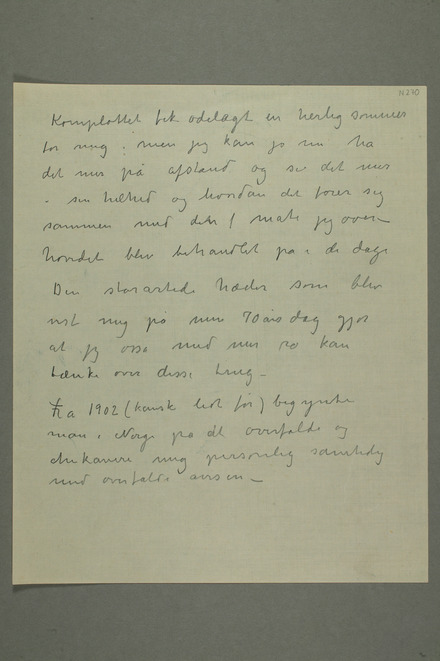 N 270
Komplottet fik ødelagt en herlig sommer
for mig; men jeg kan jo nu ha
det mer på afstand og se det mer
i sin helhed og hvordan det føier sig
sammen med den måte jeg over-
hovedet blev behandlet på i de dage
Den storartede hæder som blev
vist mig på min 70 års dag gjør
at jeg også med mer ro kan
tænke over disse ting –
Fra 1902 (kanske lidt før) begynte
man i Norge på at overfalde og
chikanere mig personlig samtidig
med overfalde